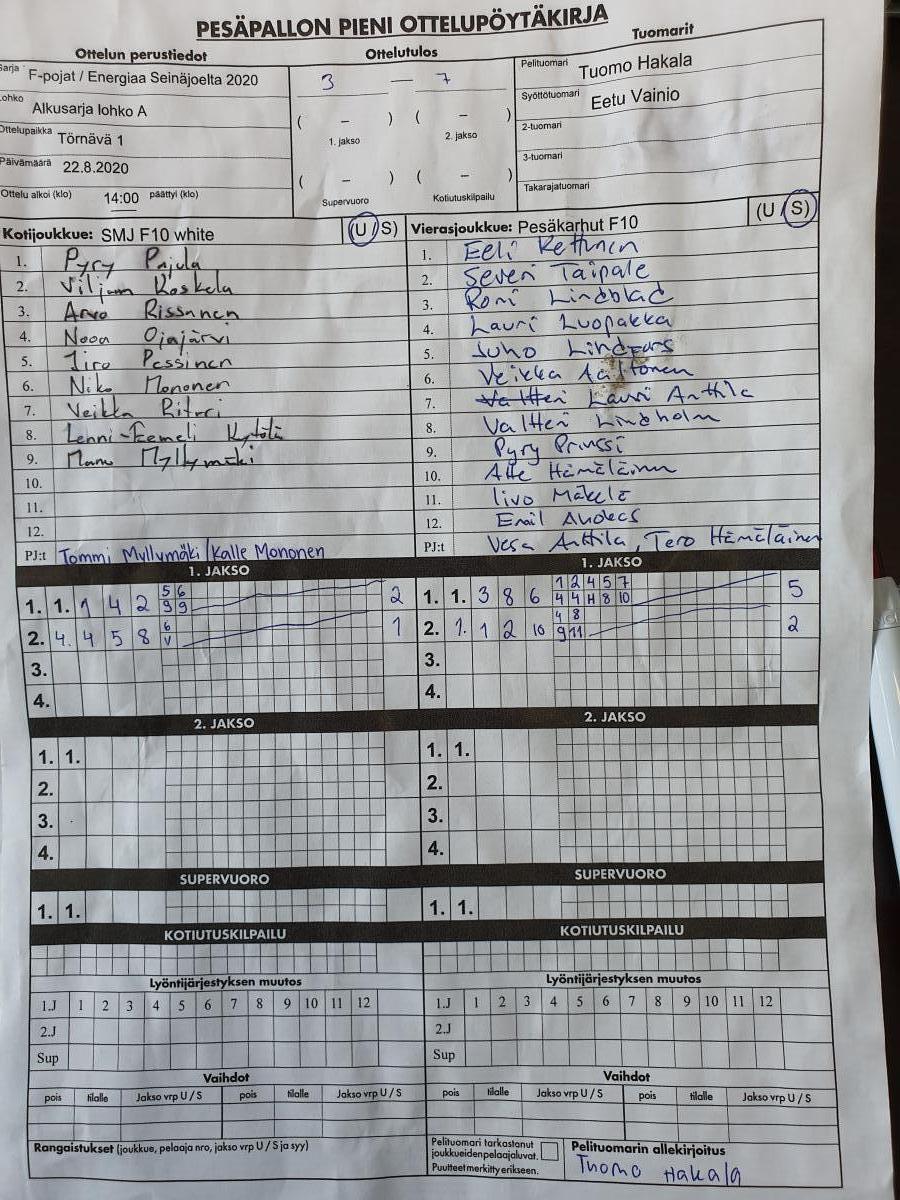 PESÄPALLON PIENI OTTELUPÖYTÄKIRJA
Ottelun perustiedot
Sarja F-pojat / Energiaa Seinäjoelta 2020
Lohko Alkusarja lohko A
Ottelupaikka Törnävä 1
Päivämäärä 22.8.2020
Ottelu alkoi (klo) 14:00 päättyi (klo)
Ottelutulos
3 — 7
( – ) ( – )
1. jakso 2. jakso
( – ) ( – )
Supervuoro Kotiutuskilpailu
Tuomarit
Pelituomari Tuomo Hakala
Syöttötuomari Eetu Vainio
2-tuomari
3-tuomari
Takarajatuomari
Kotijoukkue: SMJ F10 white (U / S)
1. Pyry Pajula
2. Viljam Koskela
3. Arvo Rissanen
4. Nooa Ojajärvi
5. Iiro Pessinen
6. Niko Mononen
7. Veikka
8. Lenni-Eemeli Kytölä
9. Manu Myllymäki
10.
11.
12.
PJ:t Tommi Myllymäki / Kalle Mononen
Vierasjoukkue: Pesäkarhut F10 (U / S)
1. Eeli Kettunen
2. Severi Taipale
3. Roni Lindblad
4. Lauri Luopakka
5. Juho Lindfors
6. Veikka Aaltonen
7. Valtteri Lauri Anttila
8. Valtteri Lindholm
9. Pyry Prinssi
10. Atte Hämäläinen
11. Iivo Mäkelä
12. Emil
PJ:t Vesa Anttila, Tero Hämäläinen
1. JAKSO
1. 1. 1 4 2 5 6 2
9 9
2. 4. 4 5 8 6 1
V
3.
4.
1. JAKSO
1. 1. 3 8 6 1 2 4 5 7 5
4 4 H 8 10
2. 1. 1 2 10 4 8 2
9 11
3.
4.
2. JAKSO
1. 1.
2.
3.
4.
2. JAKSO
1. 1.
2.
3.
4.
SUPERVUORO
1. 1.
SUPERVUORO
1. 1.
KOTIUTUSKILPAILU
KOTIUTUSKILPAILU
Lyöntijärjestyksen muutos
1.J 1 2 3 4 5 6 7 8 9 10 11 12
2.J
Sup
Lyöntijärjestyksen muutos
1.J 1 2 3 4 5 6 7 8 9 10 11 12
2.J
Sup
Vaihdot
pois tilalle Jakso vrp U / S pois tilalle Jakso vrp U / S
Vaihdot
pois tilalle Jakso vrp U / S pois tilalle Jakso vrp U / S
Rangaistukset (joukkue, pelaaja nro, jakso vrp U / S ja syy)
Pelituomari tarkastanut
joukkueiden pelaajaluvat.
Puutteet merkitty erikseen.
Pelituomarin allekirjoitus
Tuomo Hakala